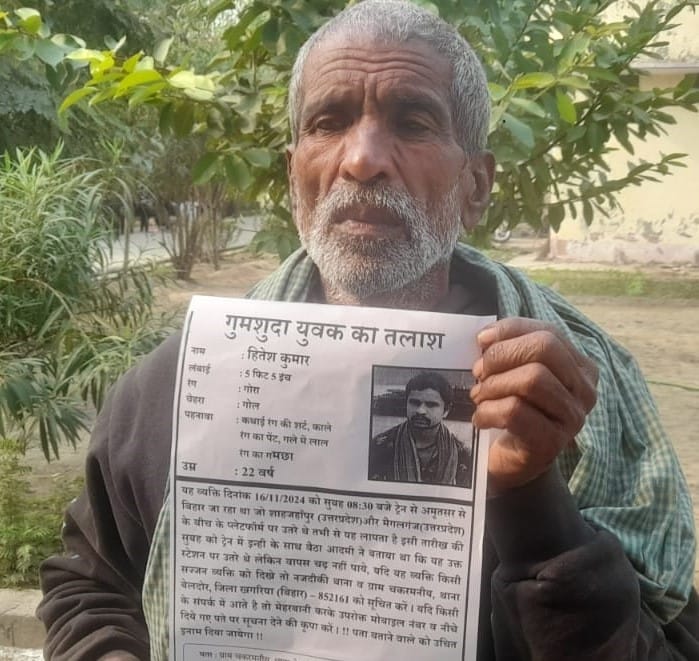 गुमशुदा युवक का तलाश
नाम : हितेश कुमार
लंबाई : 5 फिट 5 इंच
रंग : गोरा
चेहरा : गोल
पहनावा : कथाई रंग की शर्ट, काले
रंग का पेंट, गले में लाल
रंग का गमछा
उम्र : 22 वर्ष
यह व्यक्ति दिनांक 16/11/2024 को सुबह 08:30 बजे ट्रेन से अमृतसर से
बिहार जा रहा था जो शाहजहांपुर (उत्तरप्रदेश)और मैगलगंज(उत्तरप्रदेश)
के बीच के प्लेटफॉर्म पर उतरे थे तभी से यह लापता है इसी तारीख की
सुबह को ट्रेन में इन्ही के साथ बैठा आदमी ने बताया था कि यह उक्त
स्टेशन पर उतरे थे लेकिन वापस चढ़ नहीं पाये, यदि यह व्यक्ति किसी
सज्जन व्यक्ति को दिखे तो नजदीकी थाना व ग्राम चकरमनीय, थाना
बेलदोर, जिला खगरिया (बिहार) – 852161 को सूचित करें। यदि किसी
के संपर्क में आते है तो मेहरबानी करके उपरोक्त मोबाइल नंबर व नीचे
दिये गए पते पर सूचना देने की कृपा करें। !! पता बताने वाले को उचित
इनाम दिया जायेगा !!
पता : ग्राम चकरमनीय,